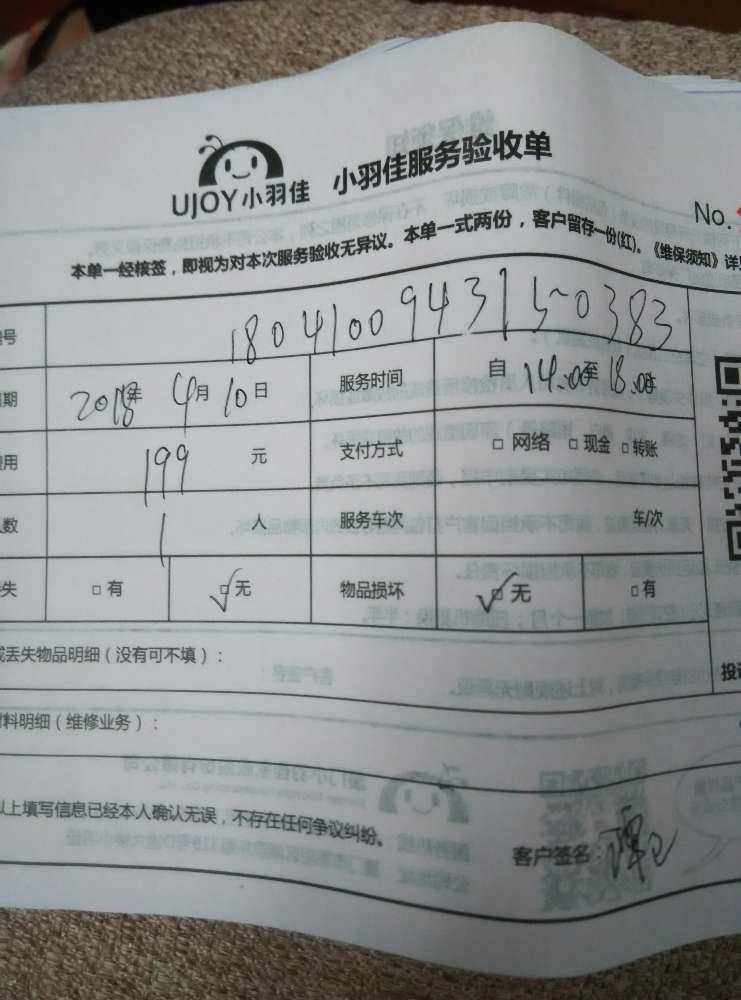 UJOY小羽佳 小羽佳服务验收单
No.
本单一经核签，即视为对本次服务验收无异议。本单一式两份，客户留存一份(红)。《维保须知》详见
号 180410094315-0383
期 2018年 4月 10日 服务时间 自 14:00至 18:00时
用 199 元 支付方式 □ 网络 □ 现金 □ 转账
数 1 人 服务车次 车/次
失 □ 有 □ 无 物品损坏 □ 无 □ 有
或丢失物品明细（没有可不填）：
投诉
材料明细（维修业务）：
以上填写信息已经本人确认无误，不存在任何争议纠纷。
客户签名：